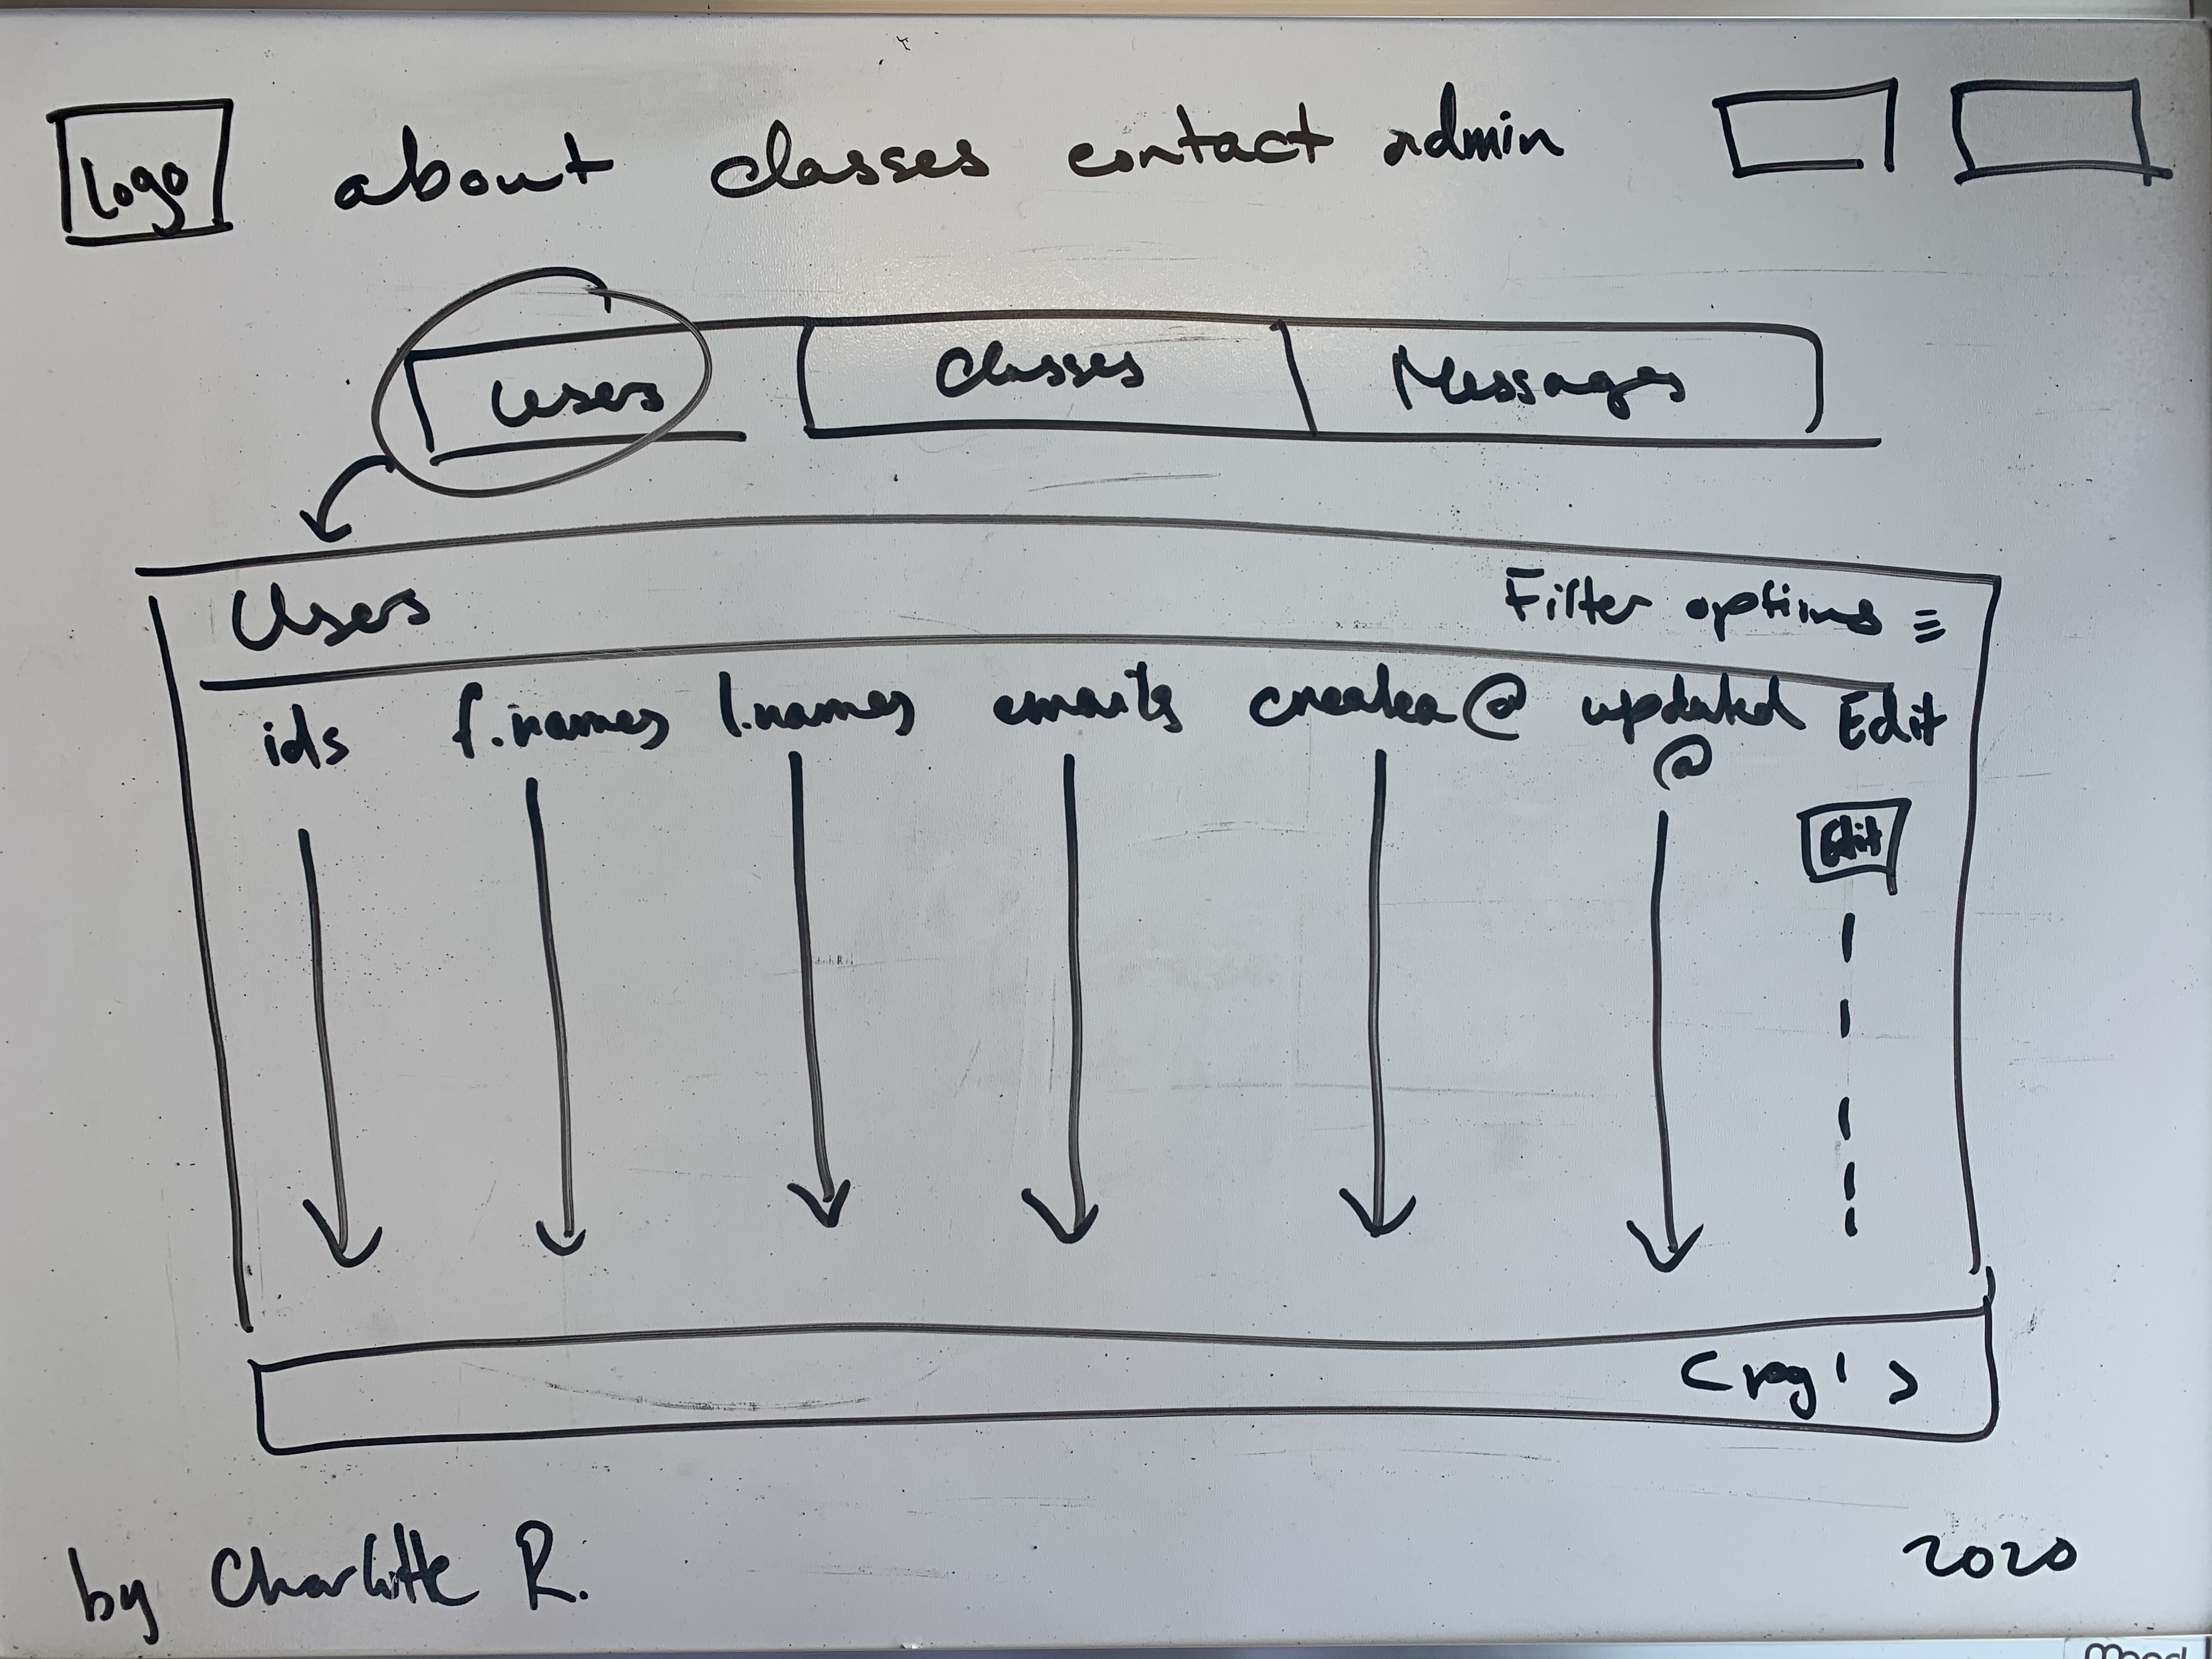 Logo about classes contact admin
Users Classes Messages
Users Filter options
ids f.names l.names emails created @ updated @ Edit
Edit
< pag 1 >
by Charlotte R. 2020